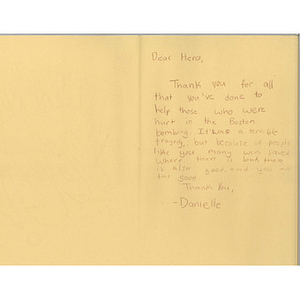 Dear Hero,
Thank you for all
that you've done to
help those who were
hurt in the Boston
bombing. It was a terrible
tragedy, but because of people
like you, many were saved
Where there is bad, there
is also good, and you are
the good
Thank You,
-Danielle